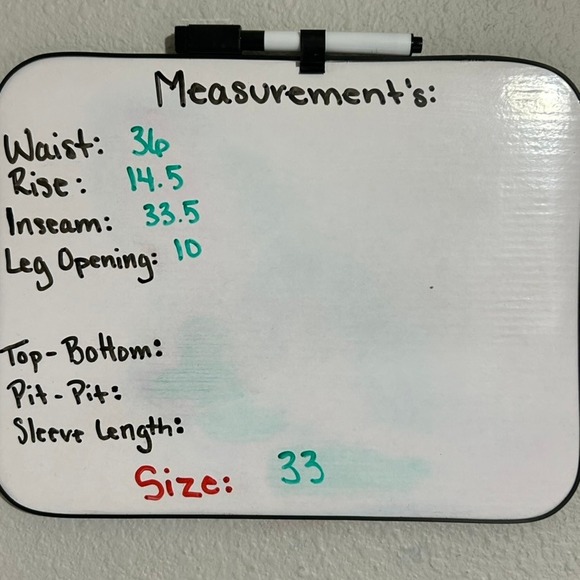 Measurement's:
Waist: 36
Rise: 14.5
Inseam: 33.5
Leg Opening: 10
Top-Bottom:
Pit-Pit:
Sleeve Length:
Size: 33